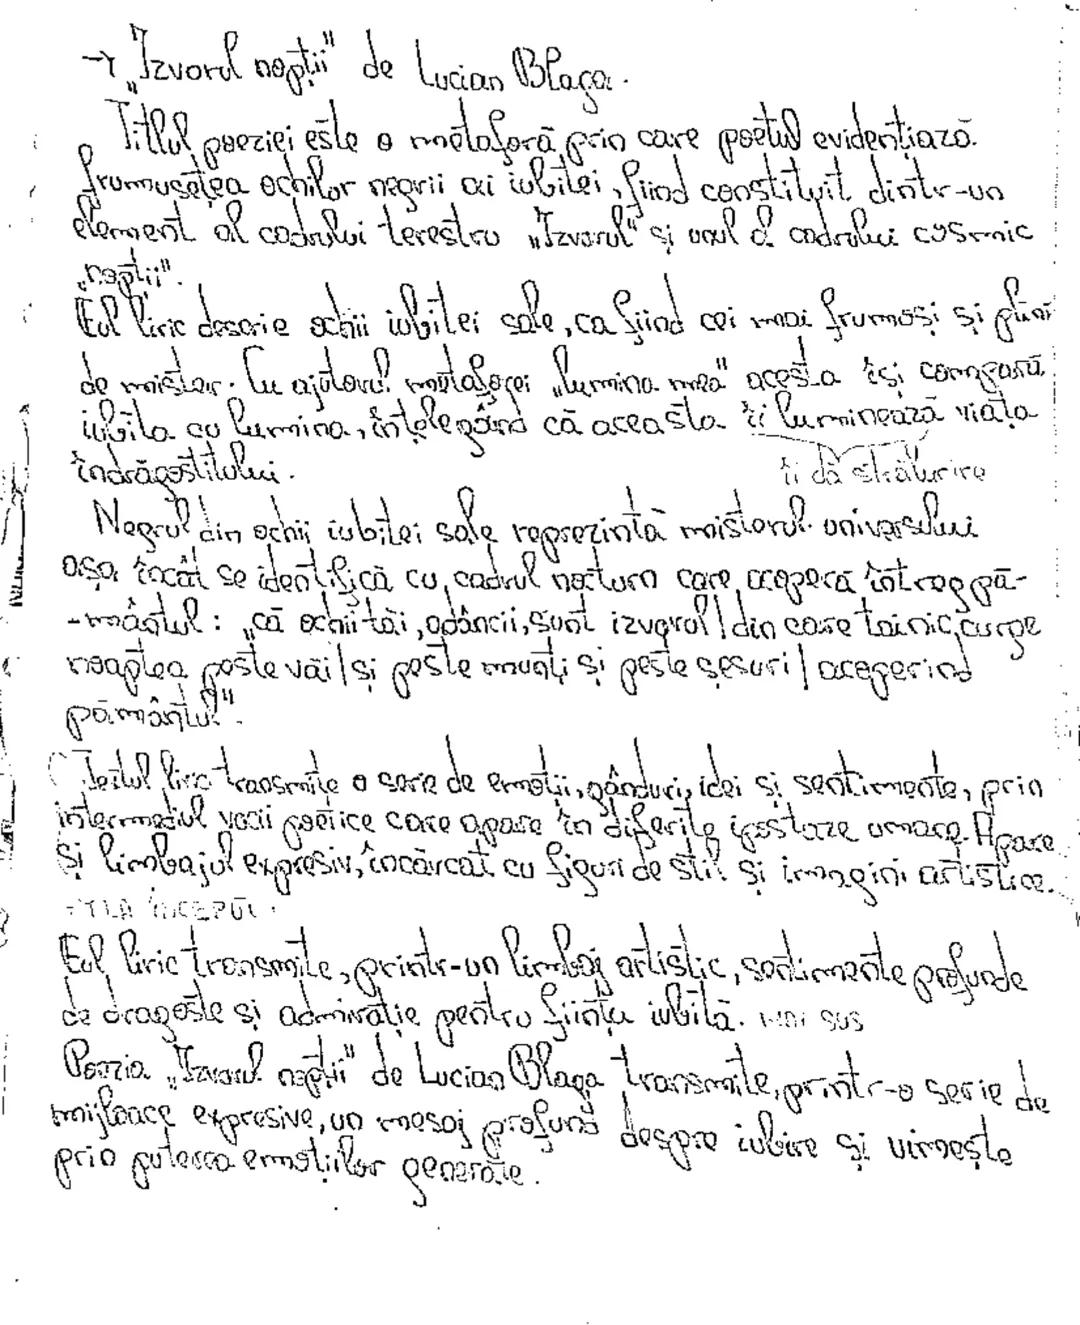 → „Izvorul nopții" de Lucian Blaga.
Titlul poeziei este o metaforă prin care poetul evidențiază
frumusețea ochilor negrii ai iubitei, fiind constituit dintr-un
element al cadrului terestru „Izvorul" și unul al cadrului cosmic
„nopții".
Eul liric descrie ochii iubitei sale, ca fiind cei mai frumoși și plini
de mister. Cu ajutorul metaforei „lumina mea" acesta își compară
iubita cu lumina, înțelegând că aceasta îi luminează viața
îndrăgostitului.
îi dă strălucire
Negrul din ochii iubitei sale reprezintă misterul universului
așa încât se identifică cu cadrul nocturn care acoperă întreg pă-
-mântul: „că ochii tăi, adâncii, sunt izvorul / din care tainic curge
noaptea peste văi / și peste munți și peste șesuri / acoperind
pământul".
Textul liric transmite o serie de emoții, gânduri, idei și sentimente, prin
intermediul vocii poetice care apare în diferite ipostaze umane. Apare
și limbajul expresiv, încărcat cu figuri de stil și imagini artistice.
LA ÎNCEPUT
Eul liric transmite, printr-un limbaj artistic, sentimente profunde
de dragoste și admirație pentru ființa iubită. MAI SUS
Poezia „Izvorul nopții" de Lucian Blaga transmite, printr-o serie de
mijloace expresive, un mesaj profund despre iubire și uimește
prin puterea emoțiilor generate.